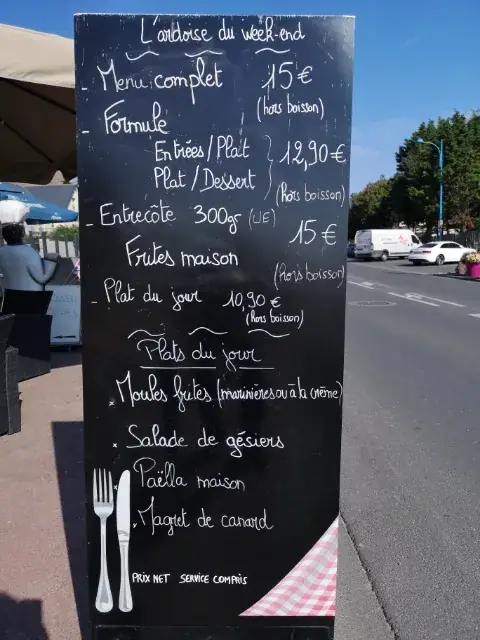 L'ardoise du week-end
- Menu complet 15€
(hors boisson)
- Formule
Entrées/Plat
Plat/Dessert
12,90€
(hors boisson)
- Entrecôte 300gr (UE)
15€
Frites maison
(hors boisson)
- Plat du jour 10,90€
(hors boisson)
Plats du jour
* Moules frites (marinières ou à la crème)
* Salade de gésiers
* Paëlla maison
* Magret de canard
PRIX NET SERVICE COMPRIS